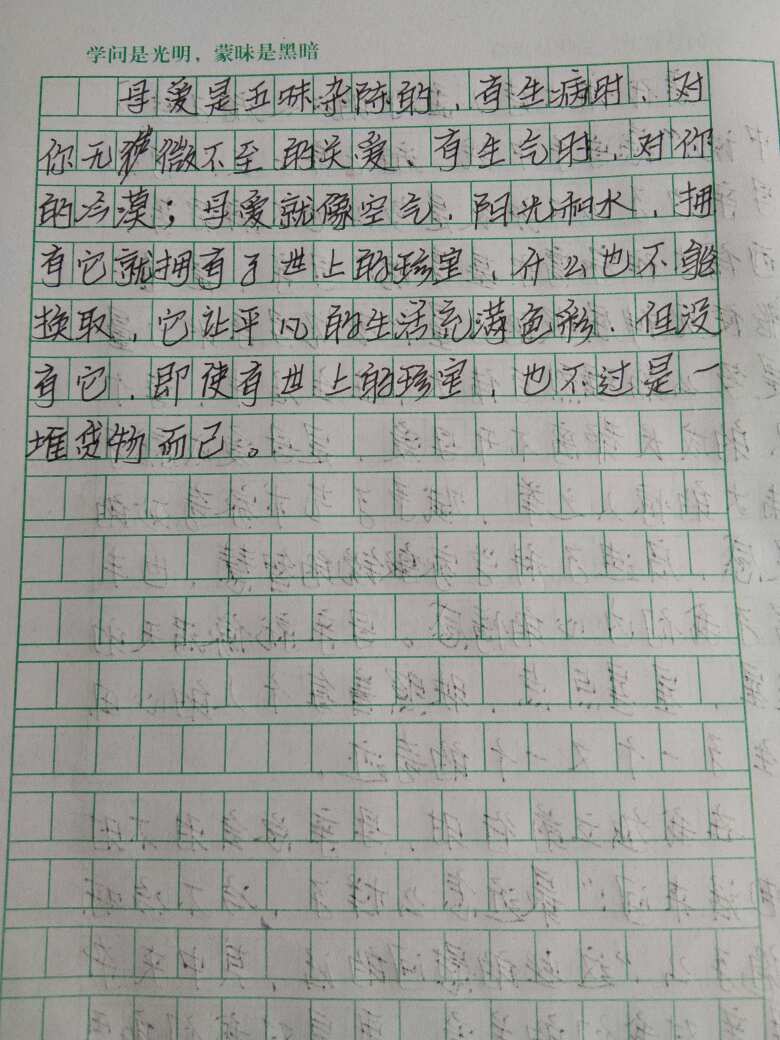 学问是光明，蒙昧是黑暗
母爱是五味杂陈的，有生病时，对
你无微不至的关爱、有生气时，对你
的冷漠；母爱就像空气，阳光和水，拥
有它就拥有了世上的珍宝，什么也不能
换取，它让平凡的生活充满色彩．但没
有它，即使有世上的珍宝，也不过是一
堆货物而已。